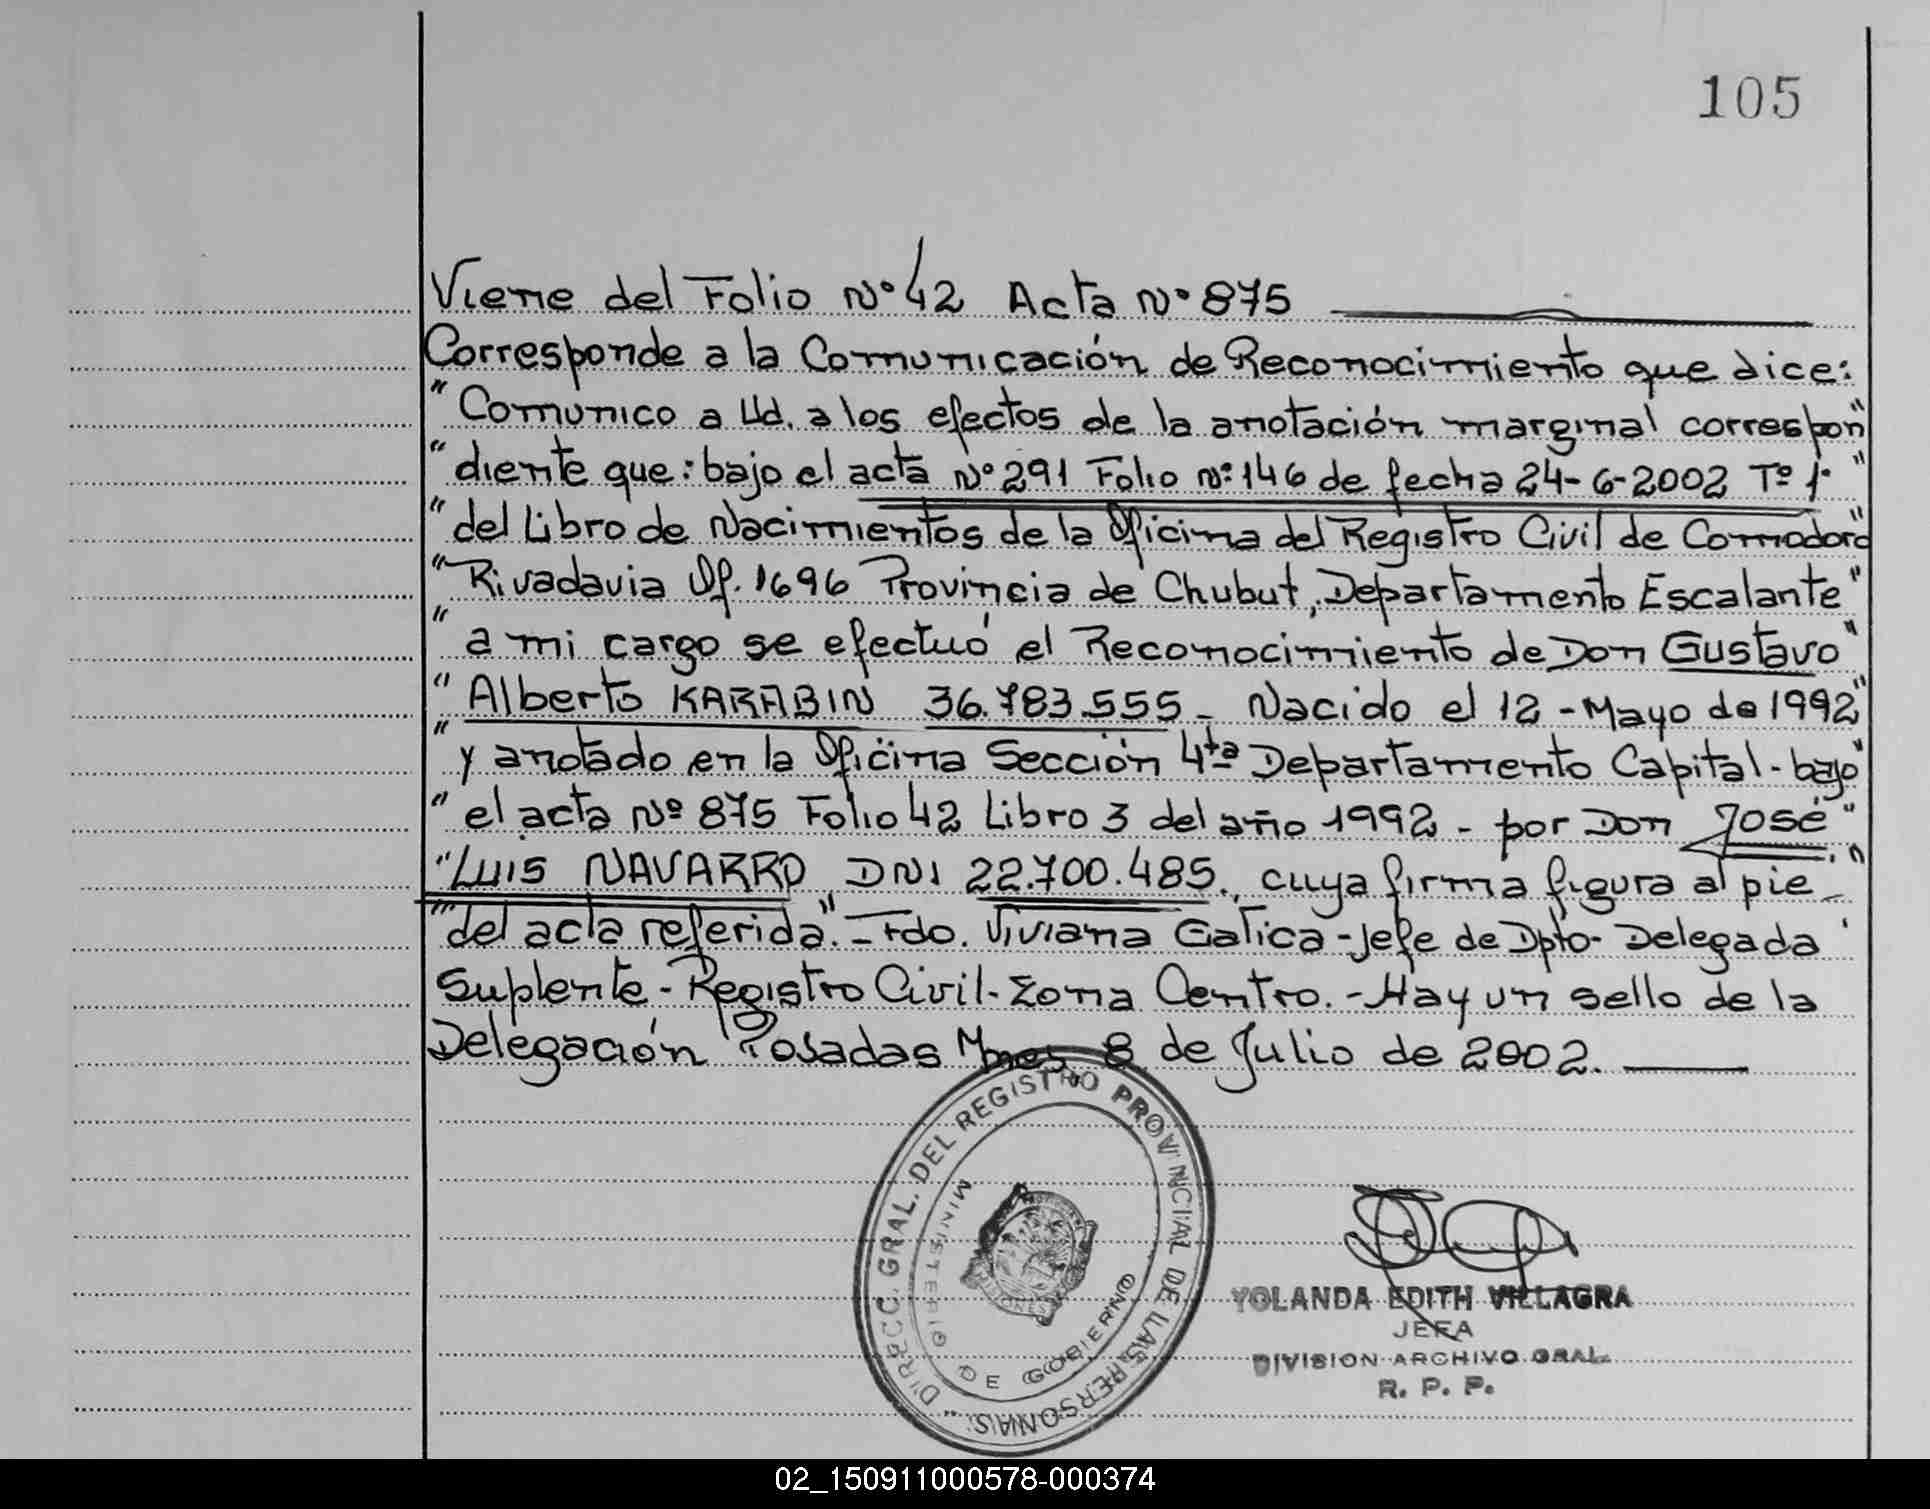 105
Viene del Folio Nº 42 Acta Nº 875
Corresponde a la Comunicación de Reconocimiento que dice:
"Comunico a Ud. a los efectos de la anotación marginal correspon"
"diente que: bajo el acta Nº 291 Folio Nº 146 de fecha 24-6-2002 Tº 1º"
"del Libro de Nacimientos de la Oficina del Registro Civil de Comodoro"
"Rivadavia Of. 1696 Provincia de Chubut, Departamento Escalante"
"a mi cargo se efectuó el Reconocimiento de Don Gustavo"
"Alberto KARABIN 36.783.555 - Nacido el 12 - Mayo de 1992"
"y anotado en la Oficina Sección 4ta Departamento Capital - bajo"
"el acta Nº 875 Folio 42 Libro 3 del año 1992 - por Don José"
"Luis NAVARRO DNI 22.700.485., cuya firma figura al pie -"
"del acta referida". - Fdo. Viviana Gatica - Jefe de Dpto - Delegada
Suplente - Registro Civil - Zona Centro. - Hay un sello de la
Delegación Posadas Mnes 8 de Julio de 2002.
DIRECC. GRAL. DEL REGISTRO PROVINCIAL DE LAS PERSONAS
MINISTERIO DE GOBIERNO
MISIONES
YOLANDA EDITH VILLAGRA
JEFA
DIVISION ARCHIVO GRAL.
R. P. P.
02_150911000578-000374